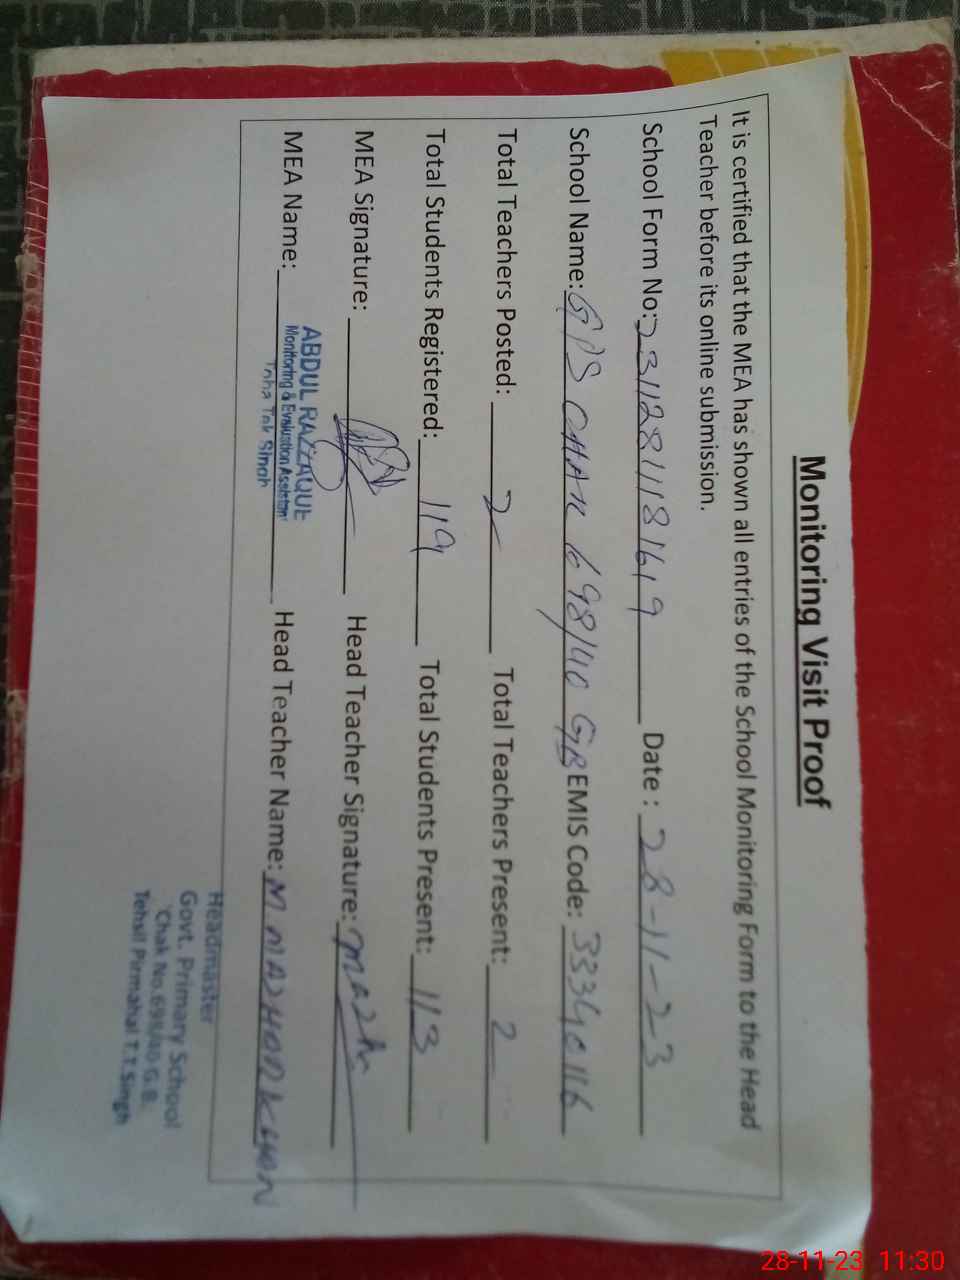 Monitoring Visit Proof
It is certified that the MEA has shown all entries of the School Monitoring Form to the Head
Teacher before its online submission.
School Form No: 23112811181619 Date : 28-11-23
School Name: GPS CHAK 698/40 GB EMIS Code: 33340116
Total Teachers Posted: 2 Total Teachers Present: 2
Total Students Registered: 119 Total Students Present: 113
MEA Signature: Head Teacher Signature:
MEA Name: ABDUL RAZZAQUE Head Teacher Name: M.
Monitoring & Evaluation Assistant
Toba Tek Singh
Headmaster
Govt. Primary School
Chak No.698/40 G.B.
Tehsil Pirmahal T.T.Singh
28-11-23 11:30